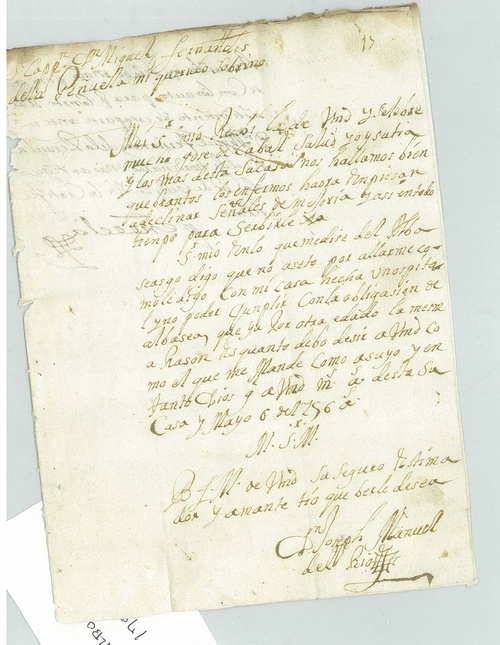 17
Sr Cappn Dn Miguel Fernandes
de la Penuella mi querido sobrino
Mui Sr mio Revi la de Vmd y selebre
mucho gose de Cabal Salud yo y su tia
y los mas desta Su Casa nos hallamos bien
quebrantos los enfermos haora enpiesan
a declinar Señales de mejoria y assi en todo
tienpo para Serbirle
Sr mio en lo que me dise del Alba
seasgo digo que no aseto por allarme co
mo le digo Con mi casa hecha un ospital
y no poder Cunplir Con la obligasion de
albasea, que ya por otra e dado la mesm
a Rason Es quanto debo desir a Vmd Co
mo el que me Mande Como a suyo y en
tanto Dios gẽ a Vmd ms as desta Su
Casa y Mayo 6 de 1756 as
M. S. M.
B L M. de Vmd Su Seguro Estima
dor y amante tio que berle desea
Dn Joseph Manuel
del Rio